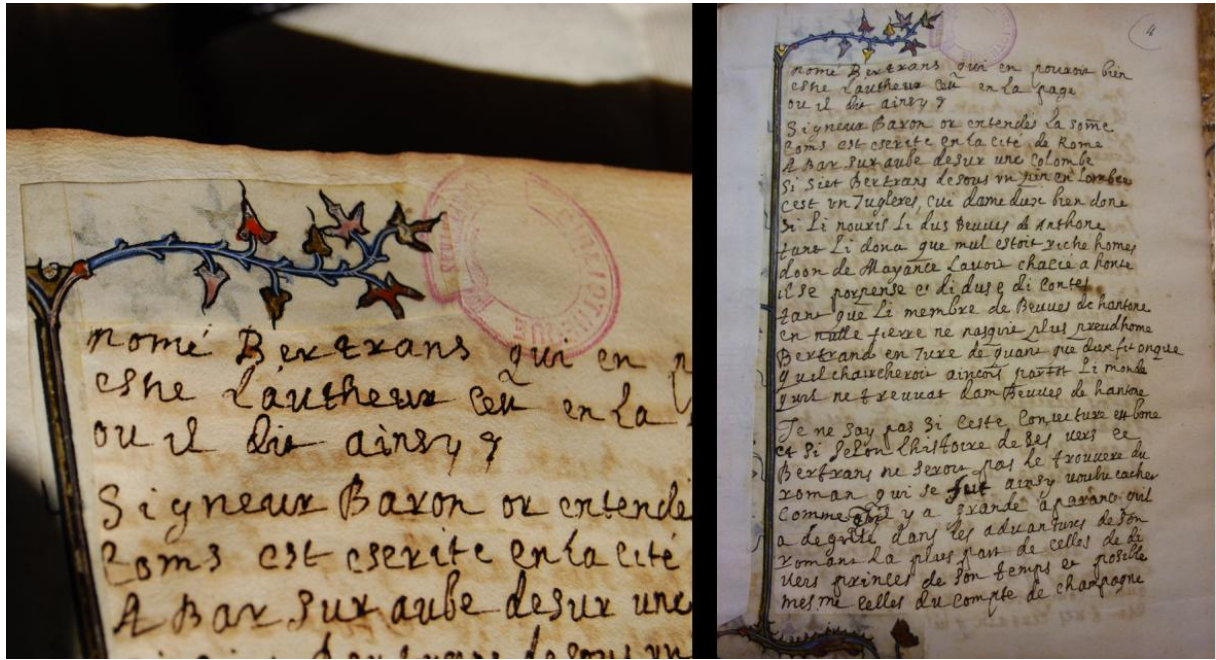 nomé Bertrans qui en p
estre L'autheur en La
ou il dit ainsy
Signeur Baron or entende
Coms est escrite en la cité
A Bar sur aube desur une
Bertrans desous vn
4
nomé Bertrans qui en pouroit bien
estre L'autheur en La page
ou il dit ainsy
Signeur Baron or entendes La some
Coms est escrite en la cité de Rome
A Bar sur aube desur une Colombe
Si Siet Bertrans desous vn pin en Lombre
Cest vn Jugleres, cui dame diex bien done
Si Li nouris Li dus Beuves de Anthone
tant Li dona que mul estoit riche homes
doon de Mayance Lavoit chacié a honte
il se porpense di dus di contes
tant que Li membre de Beuves de hantone
en nulle tierre ne nasquit plus preudhome
Bertrand en Jure de quant que diex fit onque
quil chaircheroit aincois partot Li monde
quil ne treuvat dam Beuves de hantone
Je ne say pas Si Ceste Coniecture est bone
et Si Selon Lhistoire de Ses vers ce
Bertrans ne Seroit pas Le trouvere du
roman qui se fut ainsy voulu cacher
Comme il y a grande aparance quil
a degvisé dans les advantures de son
romans la plus part de celles de di
vers princes de Son temps et posible
mesme celles du Compte de champagne